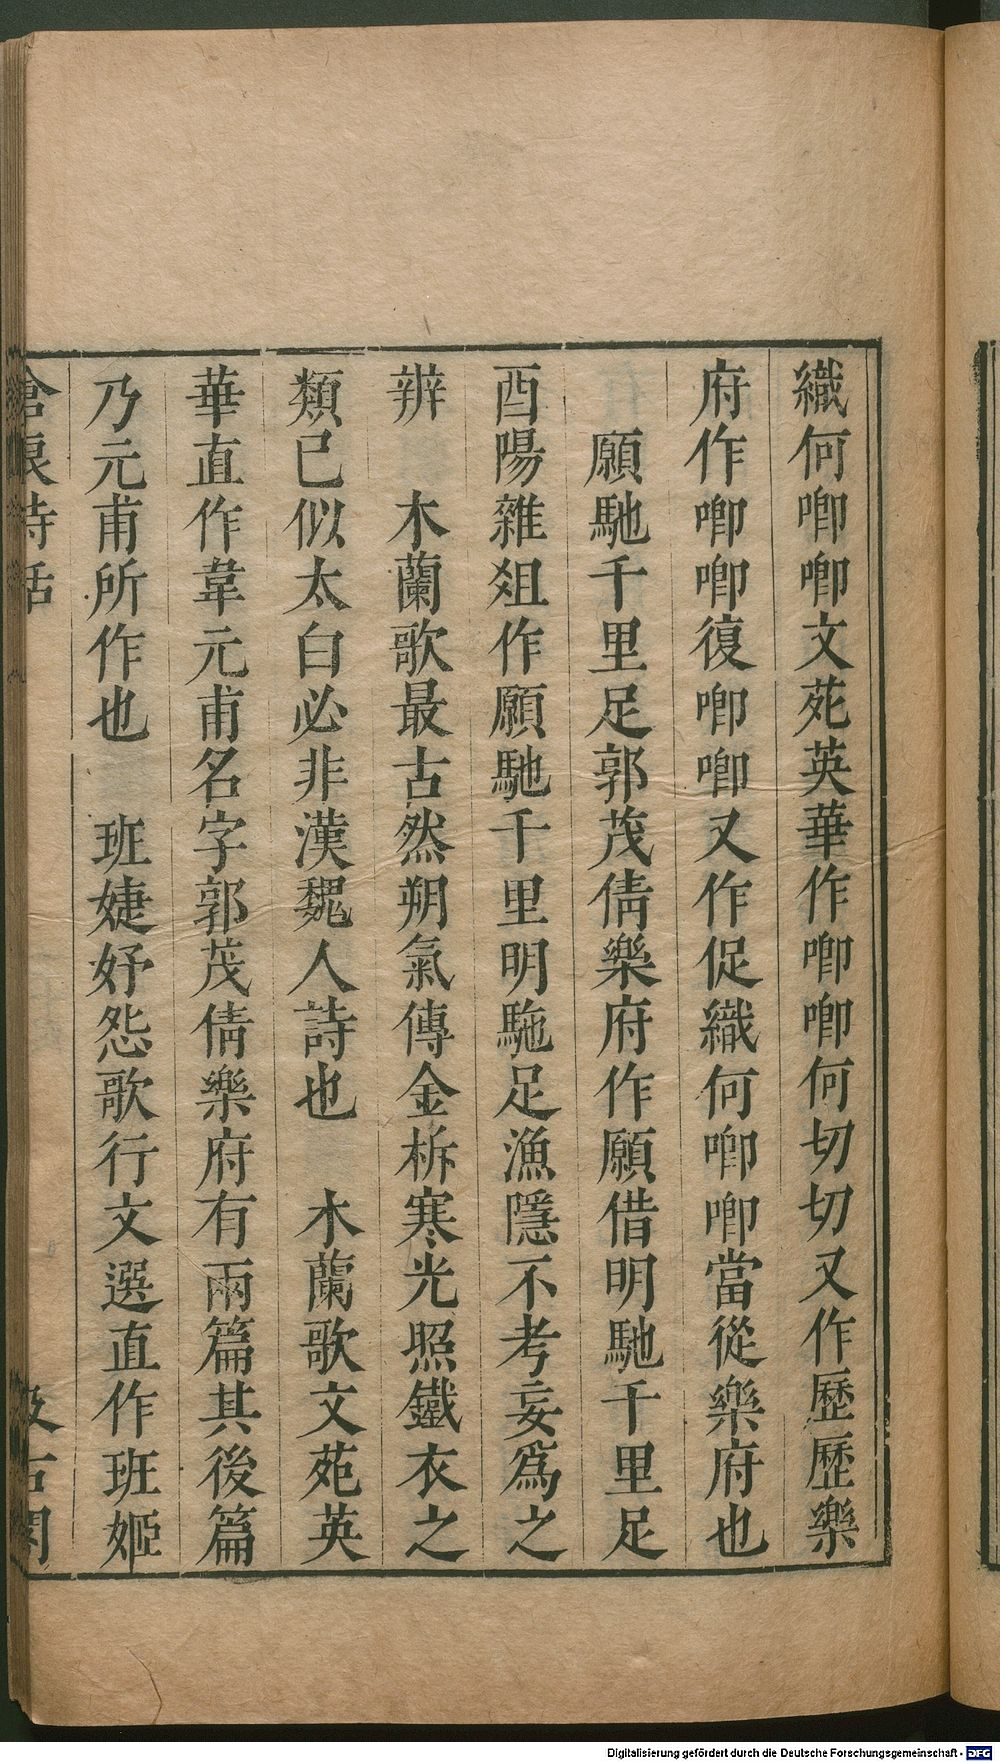 織何唧唧文苑英華作唧唧何切切又作歷歷樂
府作唧唧復唧唧又作促織何唧唧當從樂府也
願馳千里足郭茂倩樂府作願借明馳千里足
酉陽雜俎作願馳千里明駞足漁隱不考妄爲之
辨　木蘭歌最古然朔氣傳金柝寒光照鐵衣之
類已似太白必非漢魏人詩也　木蘭歌文苑英
華直作韋元甫名字郭茂倩樂府有兩篇其後篇
乃元甫所作也　班婕妤怨歌行文選直作班姬
滄浪詩話　汲古閣
Digitalisierung gefördert durch die Deutsche Forschungsgemeinschaft - DFG